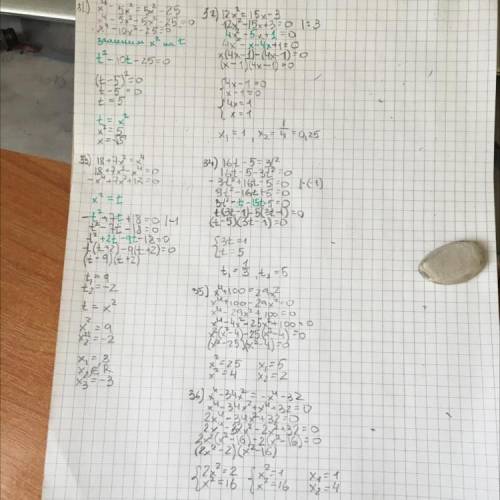 31) x⁴-5x²=5x²-25
x⁴-5x²-5x²-25=0
x⁴-10x²-25=0
t²-10t-25=0
(t-5)²=0
t-5=0
t=5
t=x²
x²=5
x=√5
32) 12x²=15x-3
12x²-15x+3=0 |:3
4x²-5x+1=0
4x²-x-4x+1=0
x(4x-1)-(4x-1)=0
(x-1)(4x-1)=0
{4x-1=0
x-1=0
{4x=1
x=1
x₁=1, x₂=1/4=0,25
33) 18+7x²=x⁴
18+7x²-x⁴=0
-x⁴+7x²+18=0
x²=t
-t²+7t+18=0 |-1
t²-7t-18=0
t²+2t-9t-18=0
t(t+2)-9(t+2)=0
(t-9)(t+2)
t₁=9
t₂=-2
t=x²
x²=9
x²=-2
x₁=3
x₃=-3
34) 16t-5=3t²
16t-5-3t²=0
-3t²+16t-5=0 |·(-1)
3t²-16t+5=0
3t²-t-15t+5=0
t(3t-1)-5(3t-1)=0
(t-5)(3t-1)=0
{3t=1
t=5
t₁=1/3, t₂=5
35) x⁴+100=29x²
x⁴+100-29x²=0
x⁴-29x²+100=0
x⁴-4x²-25x²+100=0
x²(x²-4)-25(x²-4)=0
(x²-25)(x²-4)=0
x²=25 x₁=5
x²=4 x₂=2
36) x⁴-34x²=-x⁴-32
x⁴-34x²+x⁴+32=0
2x⁴-34x²+32=0
2x⁴-32x²-2x²+32=0
2x²(x²-16)-2(x²-16)=0
(2x²-2)(x²-16)
{2x²=2 {x²=1 x₁=1
x²=16 x²=16 x₂=4